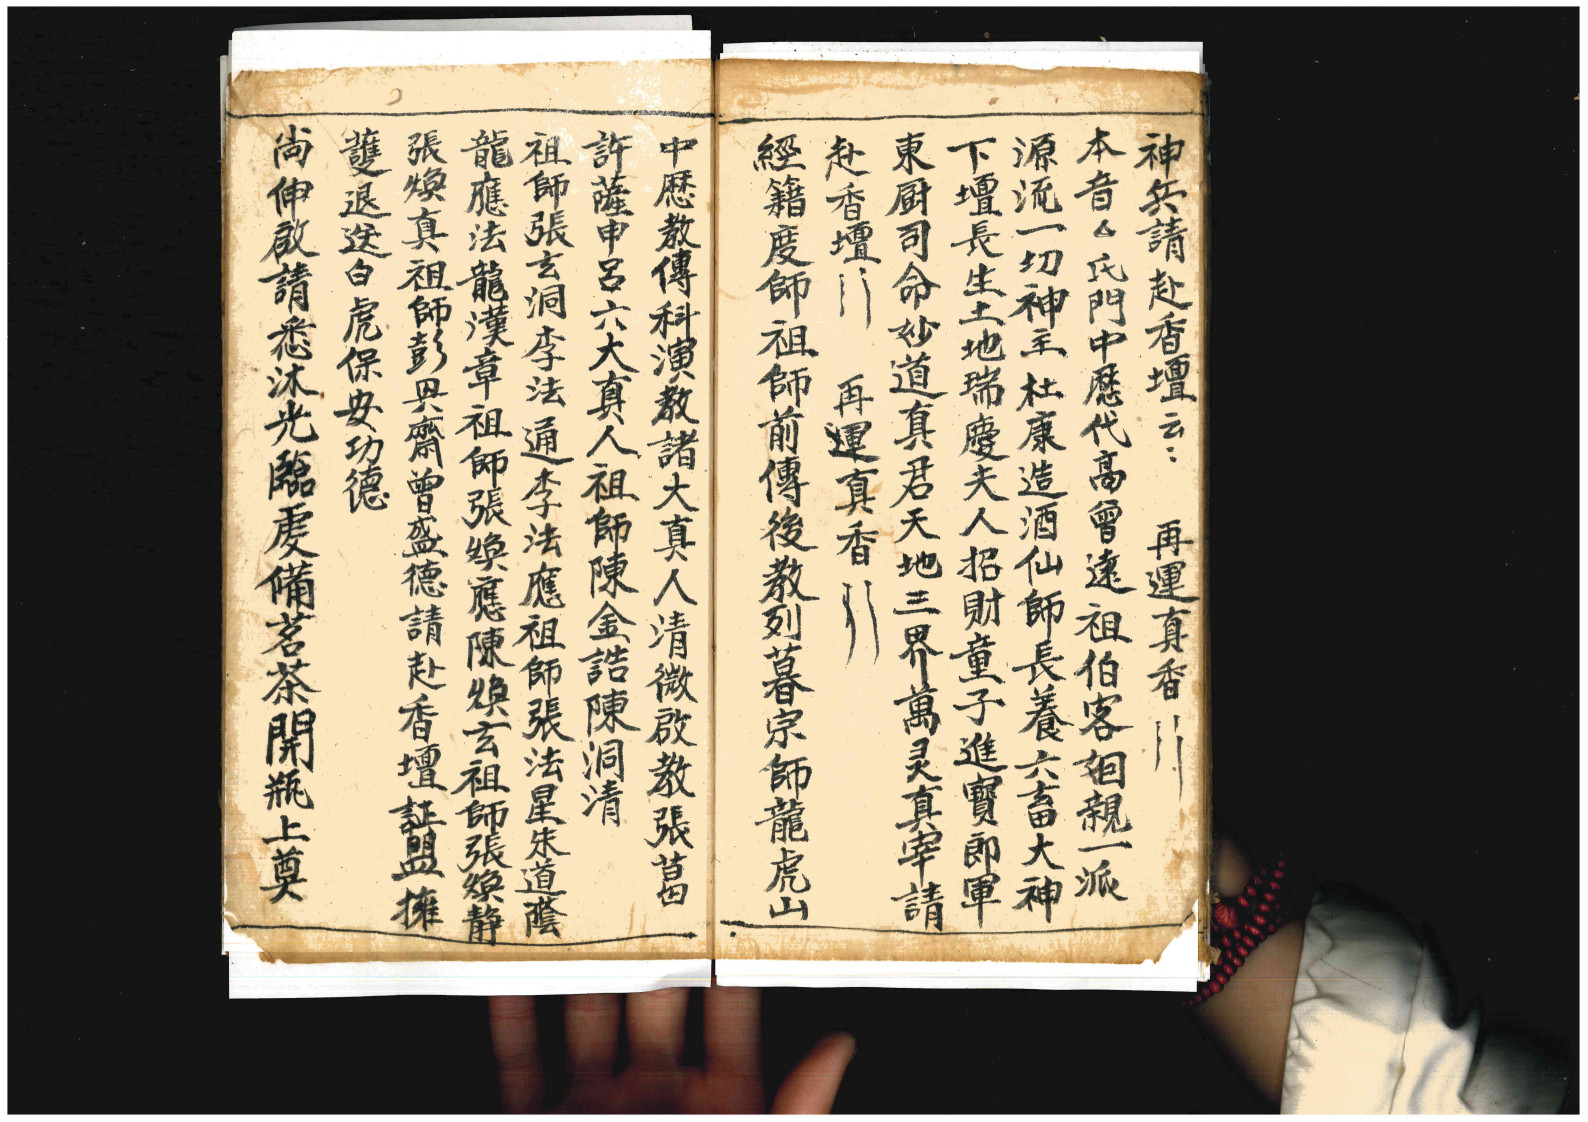 神兵請赴香壇云〻 再運真香〢
本音厶氏門中歷代高曾遠祖伯客姻親一派
源流一切神主杜康造酒仙師長養六畜大神
下壇長生土地瑞慶夫人招財童子進寶郎軍
東厨司命妙道真君天地三界萬灵真宰請
赴香壇〢 再運真香〢
經籍度師祖師前傳後教列暮宗師龍虎山
中歷教傳科演教諸大真人清微啟教張葛
許薩申呂六大真人祖師陳金誥陳洞清
祖師張玄洞李法通李法應祖師張法星朱道蔭
龍應法龍漢章祖師張煥應陳煥玄祖師張煥静
張煥真祖師彭與齋曾盛德請赴香壇証盟擁
護退送白虎保安功德
尚伸啟請悉沐光臨虔備茗茶開瓶上奠